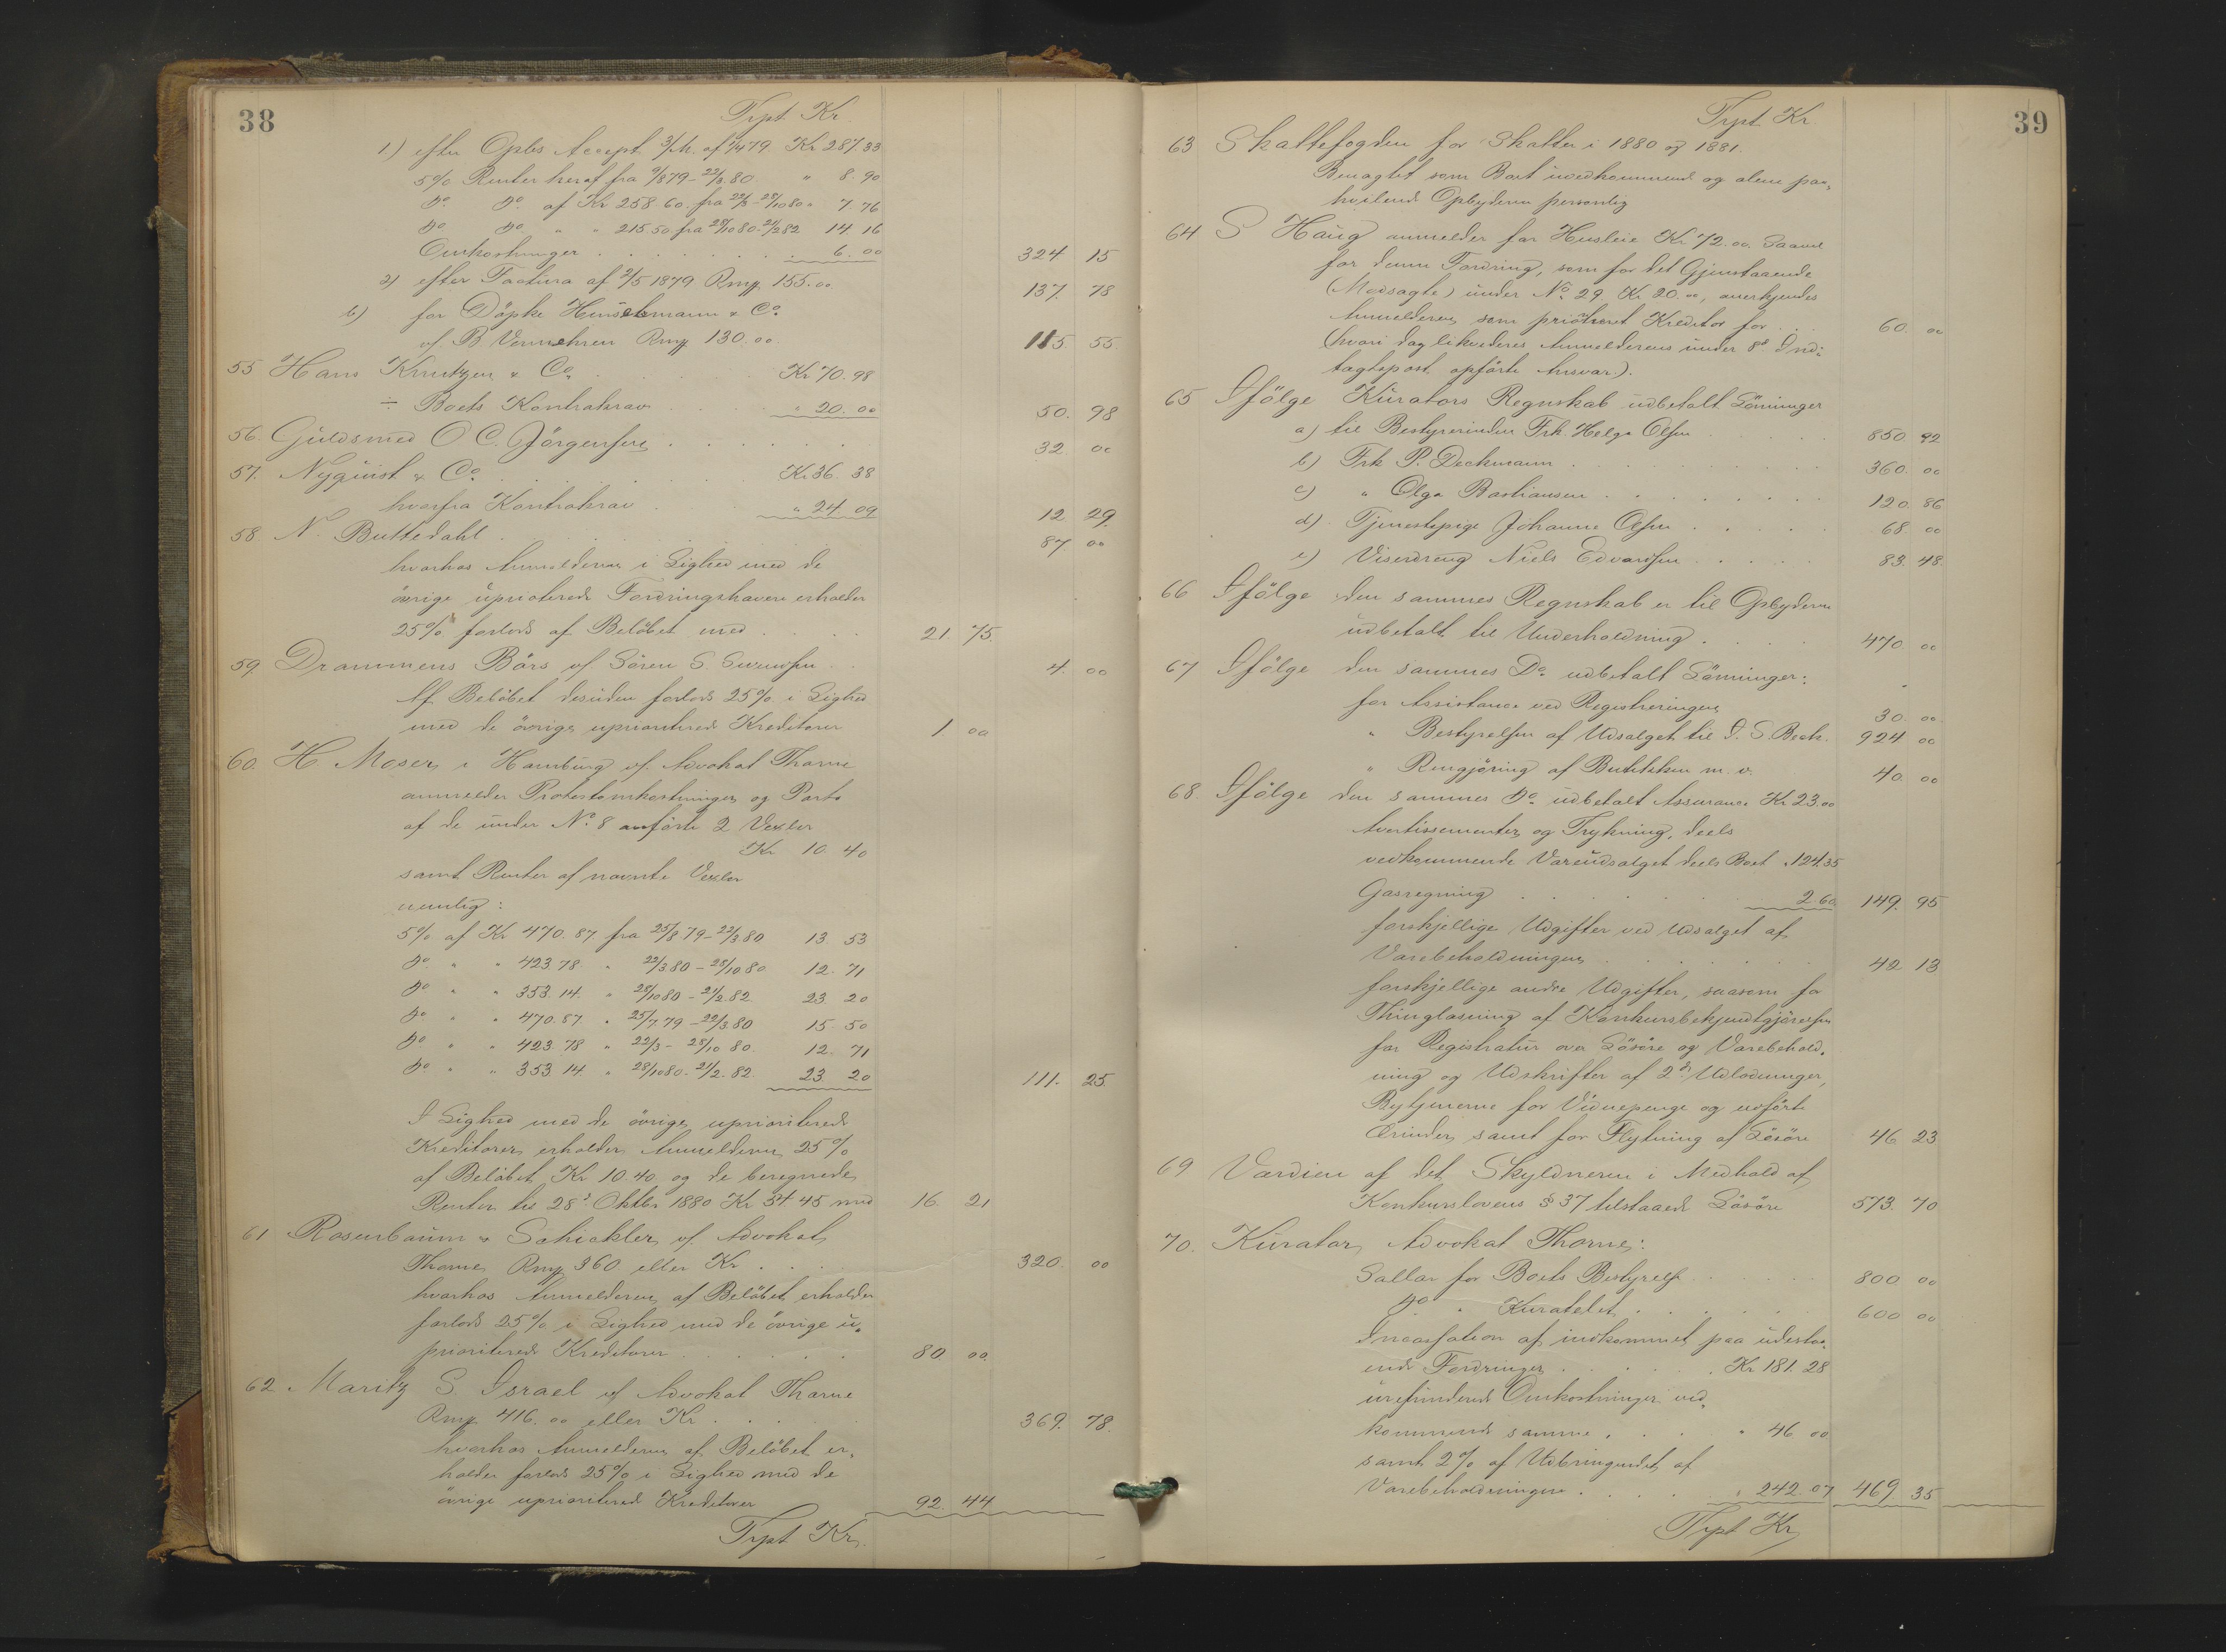 38
Trpt Kr.
1) efter Opbs Accept 3/M. af 9/4 79 Kr 287 33
5% Renter heraf fra 9/8 79 - 22/3 80 " 8. 90
Do. Do. af Kr 258. 60. fra 22/3 - 28/10 80 " 7. 76
Do Do " " 215 50 fra 28/10 80 - 21/2 82 14. 16
Omkostninger . . . . . . 6. 00 324 15
2) efter Factura af 2/5 1879 Rmp 155. 00 137. 78
b) for Döpke Hinschmann & Co.
v/ B Vermehren Rmp 130. 00. 115. 55.
55 Hans Knutzen & Co. . . . . Kr 70. 98
÷ Boets Kontrakrav . . . " 20. 00 50. 98
56. Guldsmed O C. Jörgensen . . . . . . 32 00
57. Nyquist & Co. . . . . . Kr 36. 38
hvorfra Kontrakrav . . " 24 09 12 29.
58. N. Buttedahl . . . . . . . . 87 00
hvorhos Anmelderen i Lighed med de
övrige uprioterede Fordringshavere erholder
25% forlods af Belöbet med . . . . 21. 75.
59. Drammens Börs v/ Sören S. . . 4. 00
Af Belöbet desuden forlods 25% i Lighed
med de övrige uprioriterede Kreditorer 1 00
60. H Moser i Hamburg v/ Advokat Thorne
anmelder Protestomkostninger og Porto
af de under No. 8 anförte 2 Vexler
Kr 10. 40
samt Renter af nævnte Vexler
nemlig:
5% af Kr 470. 87 fra 25/8 79 - 22/3 80 13. 53
Do. " " 423 78. " 22/3 80 - 28/10 80 12. 71
Do " " 353. 14. " 28/10 80 - 21/2. 82 23 20
Do " " 470. 87. " 25/7. 79 - 22/3 80 15. 50
Do " " 423. 78 " 22/3 - 28/10 80. 12. 71
Do " " 353. 14. " 28/10 80 - 21/2. 82. 23 20 111. 25
I Lighed med de övrige uprioriterede
Kreditorer erholder Anmelderen 25%
af Belöbet Kr 10. 40 og de beregnede
Renter til 28d Oktbr 1880 Kr 54 45 med 16. 21
61 Rosenbaum & Schickler v/ Advokat
Thorne Rmp 360 eller Kr . . . . 320. 00
hvorhos Anmelderen af Belöbet erholder
forlods 25% i Lighed med de övrige u-
prioriterede Kreditorer . . . . . . 80 00.
62. Moritz S. Israel v/ Advokat Thorne
Rmp 416. 00 eller Kr . . . . . 369. 78.
hvorhos Anmelderen af Belöbet er-
holder forlods 25% i Lighed med de
övrige uprioriterede Kreditorer 92. 44
Trpt Kr.
39
Trpt Kr.
63 Skattefogden for Skatter i 1880 og 1881.
Benægtet som Boet uvedkommende og alene paa-
hvilende Opbyderen personlig
64 S Haug anmelder for Husleie Kr 72. 00. Saavel
for denne Fordring, som for det Gjenstaaende
(Modsagte) under No. 29 Kr 20. 00, anerkjendes
Anmelderen som prioriteret Kreditor for . . 60. 00
(hvori dog likvideres Anmelderens under 8d Ind-
tægtspost opförte Ansvar.).
65 Ifölge Kurators Regnskab udbetalt Lönninger
a) til Bestyrerinden Frk. Helga Olsen . . . . . 850. 92
b) Frk P. Deckmann . . . . . . . . . 360. 00
c) " Olga Bastiansen . . . . . . . . 120. 86
d) Tjenestepige Johanne Olsen . . . . . 68. 00
e) Viserdreng Niels Edvardsen . . . . . 83. 48
66 Ifölge den sammes Regnskab er til Opbyderen
udbetalt til Underholdning . . . . 470. 00
67 Ifölge den sammes Do. udbetalt Lönninger:
for Assistance ved Registreringen 30. 00.
" Bestyrelsen af Udsalget til I. S. Beck. 924 00
" Rengjöring af Butikken m. v. 40 00
68. Ifölge den sammes Do. udbetalt Assurance Kr 23. 00
Avertissementer og Trykning, deels
vedkommende Vareudsalget deels Boet " 124. 35
Gasregning . . . . . . 2. 60 149. 95
forskjellige Udgifter ved Udsalget af
Varebeholdningen . . . . . . 42 13
forskjellige andre Udgifter, saasom for
Thinglæsning af Konkursbekjendtgjörelsen
for Registratur over Lösöre og Varebehold-
ning og Udskrifter af 2de Udlodninger,
Bytjenerne for Vidnepenge og udförte
Ærinder, samt for Flytning af Lösöre 46 23
69 Værdien af det Skyldneren i Medhold af
Konkurslovens § 37 tilstaaede Lösöre 573. 70
70. Kurator, Advokat Thorne:
Sallær for Boets Bestyrelse . . . . . . 800 00
Do. " Kuratelet . . . . . . 600 00
Incassation af indkommet paa udestaa-
ende Fordringer . . . . . . Kr 181. 28
urefunderede Omkostninger ved-
kommende samme . . . . " 46 00
samt 2% af Udbringendet af
Varebeholdningen . . . . . " 242. 07 469 35
Trpt Kr.